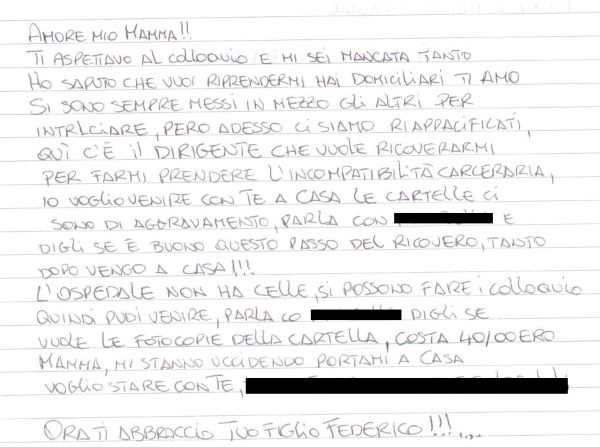 AMORE MIO MAMMA!!
TI ASPETTAVO AL COLLOQUIO E MI SEI MANCATA TANTO
HO SAPUTO CHE VUOI RIPRENDERMI HAI DOMICILIARI TI AMO
SI SONO SEMPRE MESSI IN MEZZO GLI ALTRI PER
INTRLCIARE, PERO ADESSO CI SIAMO RIAPPACIFICATI,
QUÌ C'È IL DIRIGENTE CHE VUOLE RICOVERARMI
PER FARMI PRENDERE L'INCOMPATIBILITÀ CARCERARIA,
IO VOGLIO VENIRE CON TE A CASA LE CARTELLE CI
SONO DI AGGRAVAMENTO, PARLA CON E
DIGLI SE È BUONO QUESTO PASSO DEL RICOVERO, TANTO
DOPO VENGO A CASA!!!
L'OSPEDALE NON HA CELLE, SI POSSONO FARE I COLLOQUIO
QUINDI PUOI VENIRE, PARLA CO DIGLI SE
VUOLE LE FOTOCOPIE DELLA CARTELLA, COSTA 40/00 ERO
MAMMA, MI STANNO UCCIDENDO PORTAMI A CASA
VOGLIO STARE CON TE,
ORA TI ABBRACCIO TUO FIGLIO FEDERICO!!!....